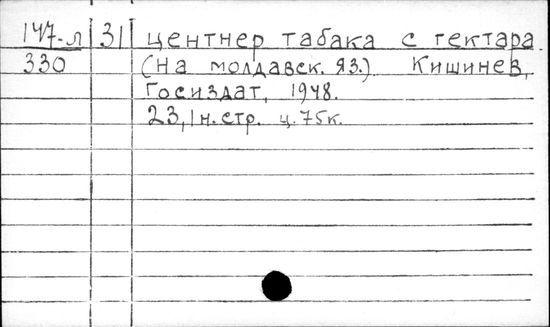 147-л 31 центнер табака с гектара.
330 (на молдавск. яз.) Кишинев,
Госиздат, 1948.
23,1 н.стр. ц.75к.